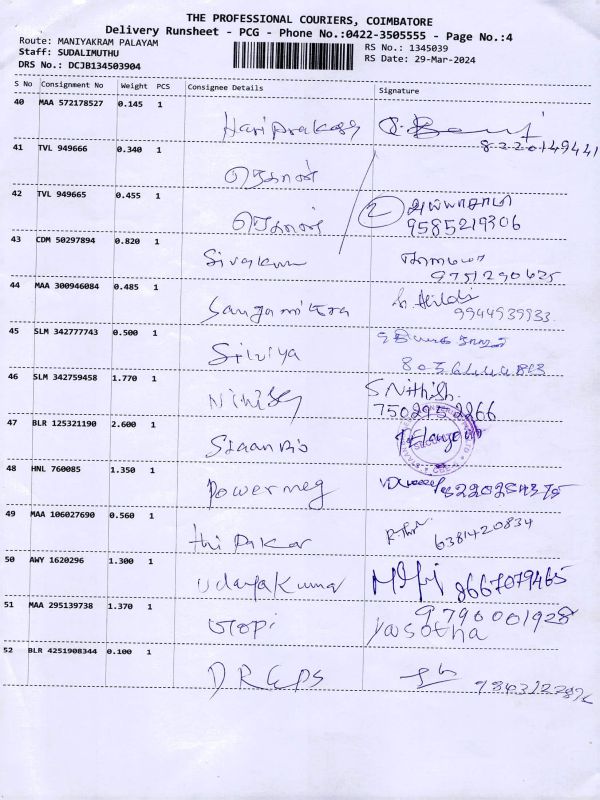 THE PROFESSIONAL COURIERS, COIMBATORE
Delivery Runsheet - PCG - Phone No.:0422-3505555 - Page No.:4
Route: MANIYAKRAM PALAYAM
RS No.: 1345039
Staff: SUDALIMUTHU
RS Date: 29-Mar-2024
DRS No.: DCJB134503904
S No Consignment No Weight PCS Consignee Details Signature
40 MAA 572178527 0.145 1
Hariprakash
8220149441
41 TVL 949666 0.340 1
42 TVL 949665 0.455 1
2 அய்யாசாமி
9585219306
43 CDM 50297894 0.820 1
Sivakum
9751290625
44 MAA 300946084 0.485 1
Sangamitra
9944939933
45 SLM 342777743 0.500 1
Silviya
46 SLM 342759458 1.770 1
Nithish S Nithish
7502952266
47 BLR 125321190 2.600 1
Staan Bio Elango
48 HNL 760085 1.350 1
Powermeg
49 MAA 106027690 0.560 1
6381420834
thipakar
50 AWY 1620296 1.300 1
Udayakumar 8667079465
51 MAA 295139738 1.370 1
9790001928
கோபி Yasotha
52 BLR 4251908344 0.100 1
DRGPS